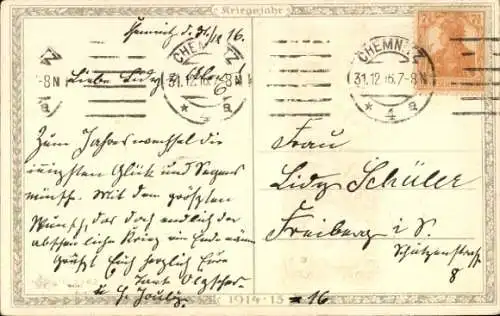 Kriegsjahr
Chemnitz d. 31/12 16.
CHEMNITZ
31.12.16.7-8N
* 4 a
CHEMNITZ
31.12.16.7-8N
* 4 a
Liebe Lidy
Zum Jahreswechsel die
innigsten Glück und Segens
wünsche. Mit dem größten
Wunsch, daß doch endlich der
abscheuliche Krieg ein Ende nähme
Grüßt Euch herzlich Eure
Tante
Frau
Lidy Schüler
Freiberg i. S.
Schützenstraße
8
1914-15 = 16